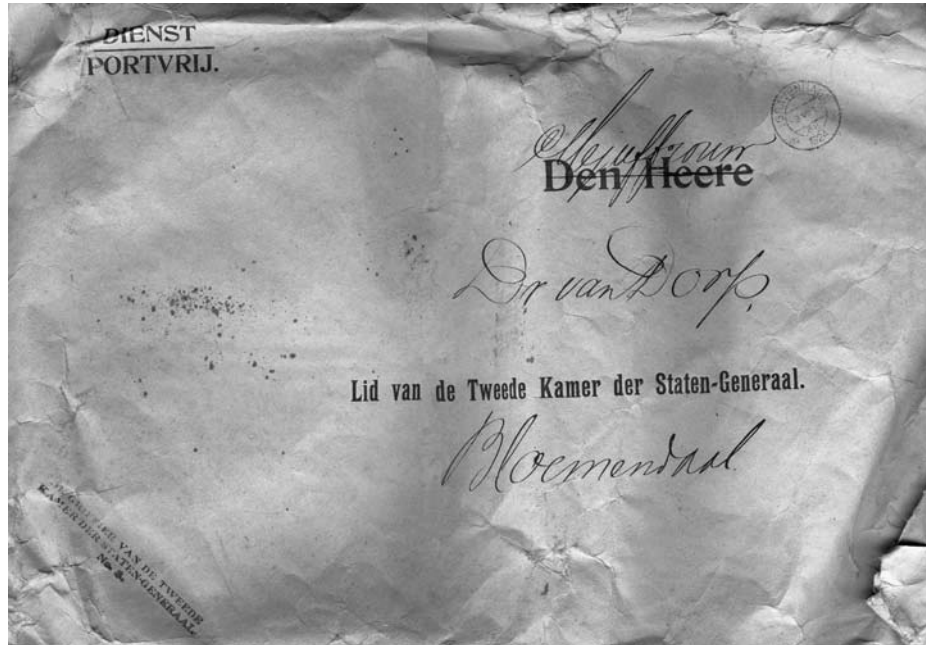 DIENST
PORTVRIJ.
Mejuffrouw
Den Heere
Dr van Dorp.
Lid van de Tweede Kamer der Staten-Generaal.
Bloemendaal
GRIFFIE VAN DE TWEEDE
KAMER DER STATEN-GENERAAL.
No